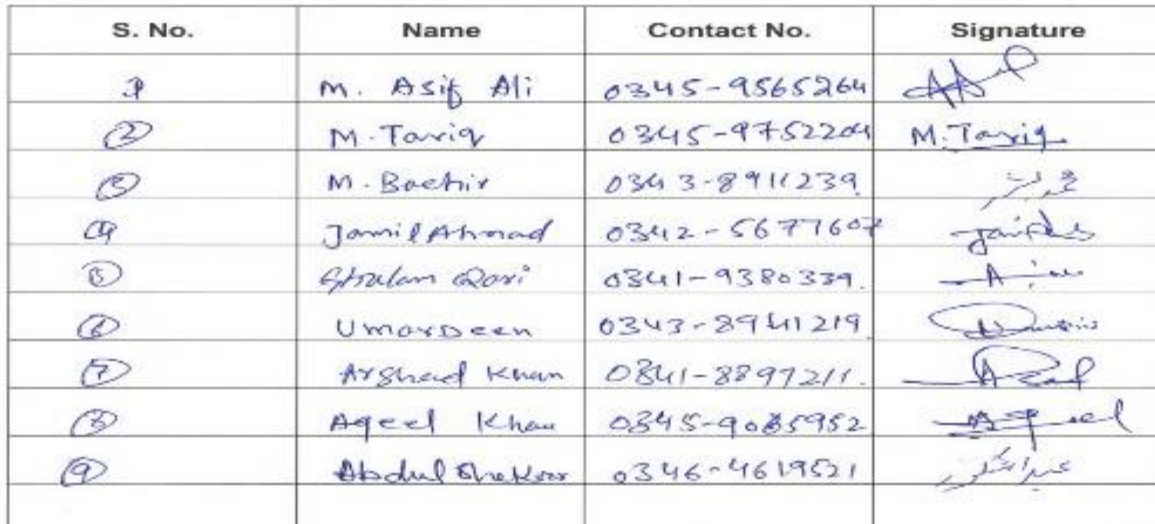 S. No. Name Contact No. Signature
1 M. Asif Ali 0345-9565264
2 M. Tariq 0345-9752204 M. Tariq
3 M. Bashir 0343-8911239
4 Jamil Ahmad 0342-5677607
5 Ghulam Qari 0341-9380339.
6 Umar Deen 0343-8941219
7 Arshad Khan 0341-8897211.
8 Aqeel Khan 0345-9085952 Aqeel
9 Abdul Shakoor 0346-4619521